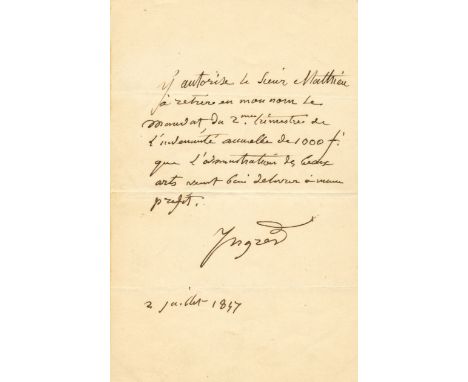 J'autorise le Sieur Matthieu
à retirer en mon nom le
mandat du 2me trimestre de
l'indemnité annuelle de 1000 f.
que l'administration des beaux
arts veut bien delivrer à mon
profit.
Ingres
2 juillet 1857